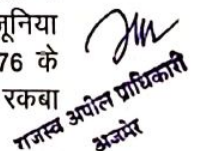 जूनिया
76 के
रकबा
राजस्व अपील प्राधिकारी
अजमेर